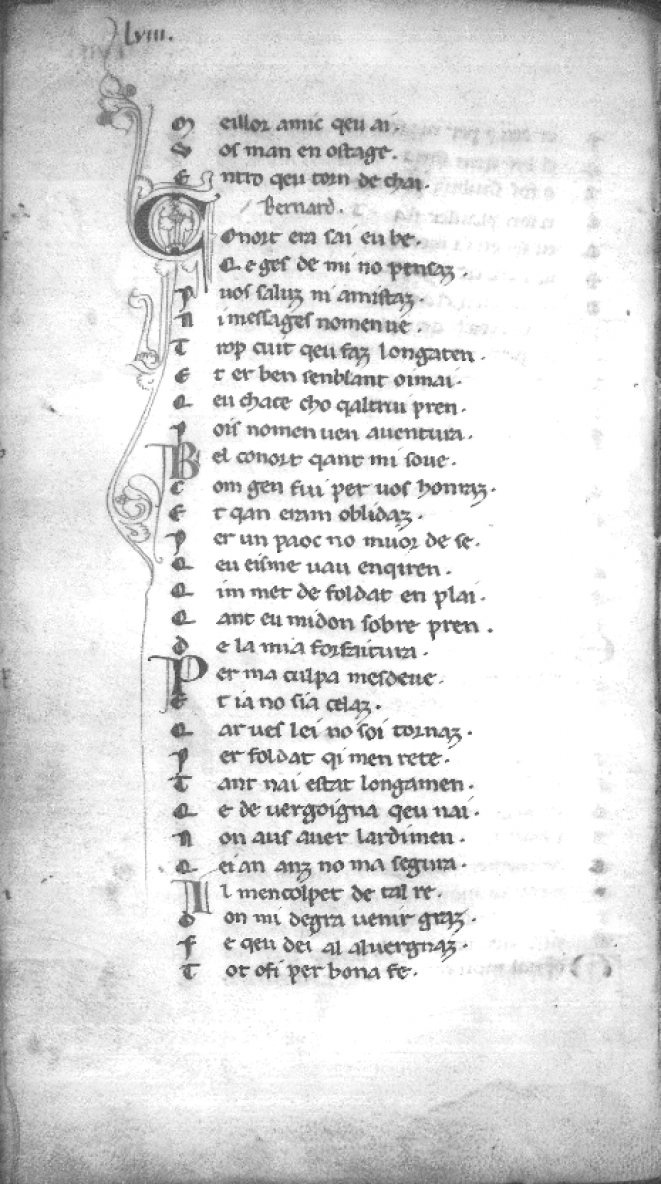 lviii.
M eillor amic qeu ai.
V os man en ostage.
E ntro qeu torn de chai.
Bernard.
C Onort era sai eu be.
Q e ges de mi no pensaz
P uos saluz ni amistaz.
N i messages nomen ue.
T rop cuit qeu faz longaten.
E t er ben senblant oimai.
Q eu chace cho qaltrui pren.
P ois nomen uen auentura.
B el conort qant mi soue.
C om gen fui per uos honraz.
E t qan eram oblidaz.
P er un paoc no muor de se.
Q eu eisme uau enqiren.
Q im met de foldat en plai.
Q ant eu midon sobre pren.
D e la mia forfaitura.
P er ma culpa mesdeue.
E t ia no sia celaz.
Q ar ues lei no soi tornaz.
P er foldat qi men rete.
T ant nai estat longamen.
Q e de uergoigna qeu nai.
N on aus auer lardimen.
Q ei an anz no ma segura.
I l mencolpet de tal re.
D on mi degra uenir graz.
F e qeu dei al aluergnaz.
T ot ofi per bona fe.